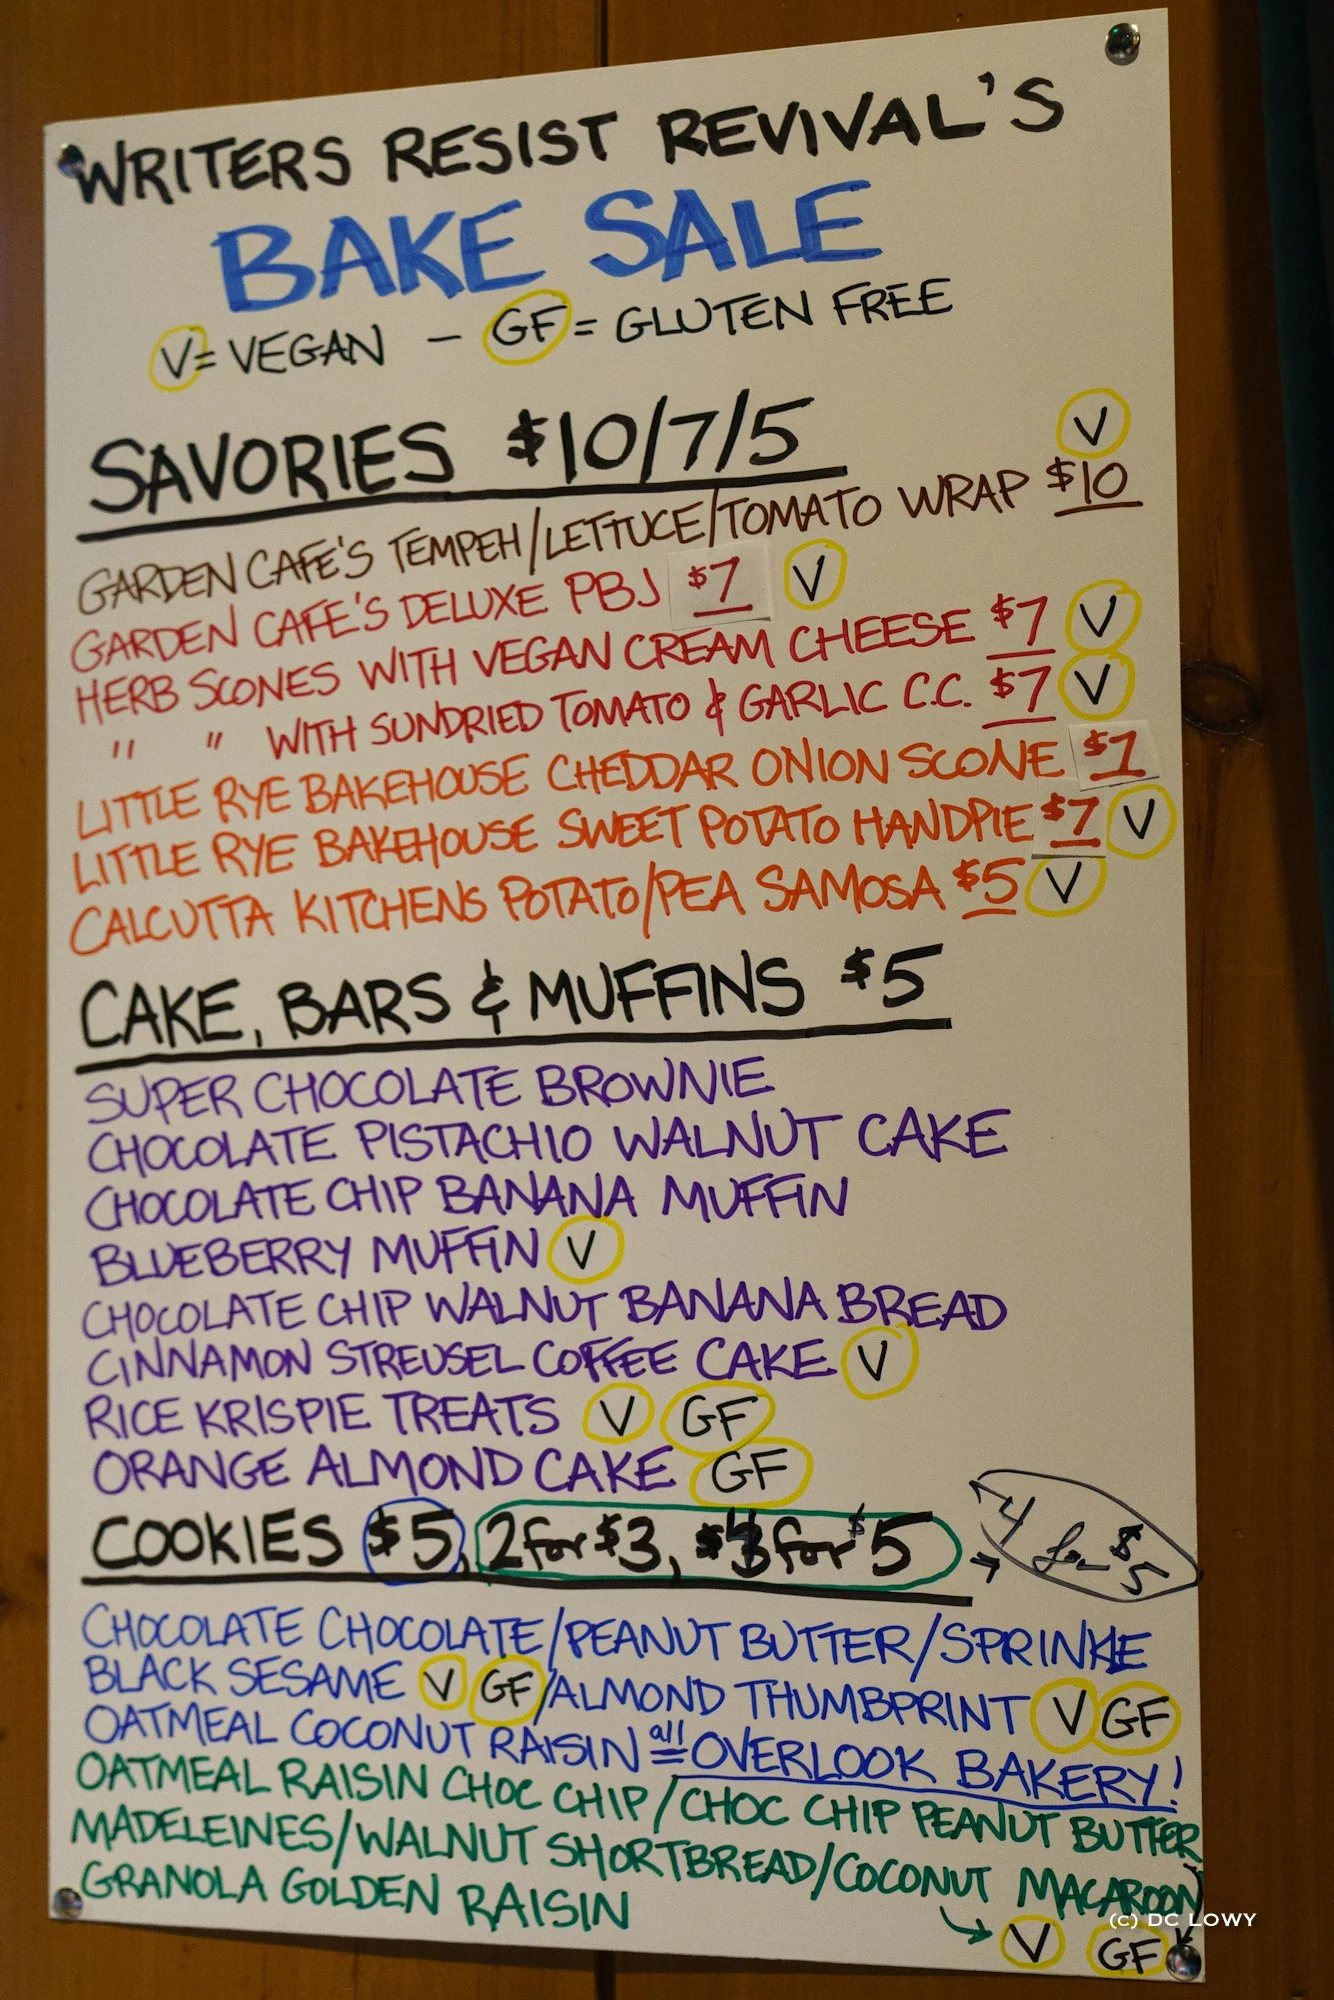 WRITERS RESIST REVIVAL'S
BAKE SALE
V = VEGAN - GF = GLUTEN FREE
SAVORIES $10/7/5
GARDEN CAFE'S TEMPEH/LETTUCE/TOMATO WRAP $10 V
GARDEN CAFE'S DELUXE PBJ $7 V
HERB SCONES WITH VEGAN CREAM CHEESE $7 V
" " WITH SUNDRIED TOMATO & GARLIC C.C. $7 V
LITTLE RYE BAKEHOUSE CHEDDAR ONION SCONE $7
LITTLE RYE BAKEHOUSE SWEET POTATO HANDPIE $7 V
CALCUTTA KITCHENS POTATO/PEA SAMOSA $5 V
CAKE, BARS & MUFFINS $5
SUPER CHOCOLATE BROWNIE
CHOCOLATE PISTACHIO WALNUT CAKE
CHOCOLATE CHIP BANANA MUFFIN
BLUEBERRY MUFFIN V
CHOCOLATE CHIP WALNUT BANANA BREAD
CINNAMON STREUSEL COFFEE CAKE V
RICE KRISPIE TREATS V GF
ORANGE ALMOND CAKE GF
COOKIES $5, 2 for $3, 4 for $5 → 4 for $5
CHOCOLATE CHOCOLATE/PEANUT BUTTER/SPRINKLE
BLACK SESAME V GF/ALMOND THUMBPRINT V GF
OATMEAL COCONUT RAISIN all = OVERLOOK BAKERY!
OATMEAL RAISIN CHOC CHIP/CHOC CHIP PEANUT BUTTER
MADELEINES/WALNUT SHORTBREAD/COCONUT MACAROON
GRANOLA GOLDEN RAISIN → V GF
(c) DC LOWY